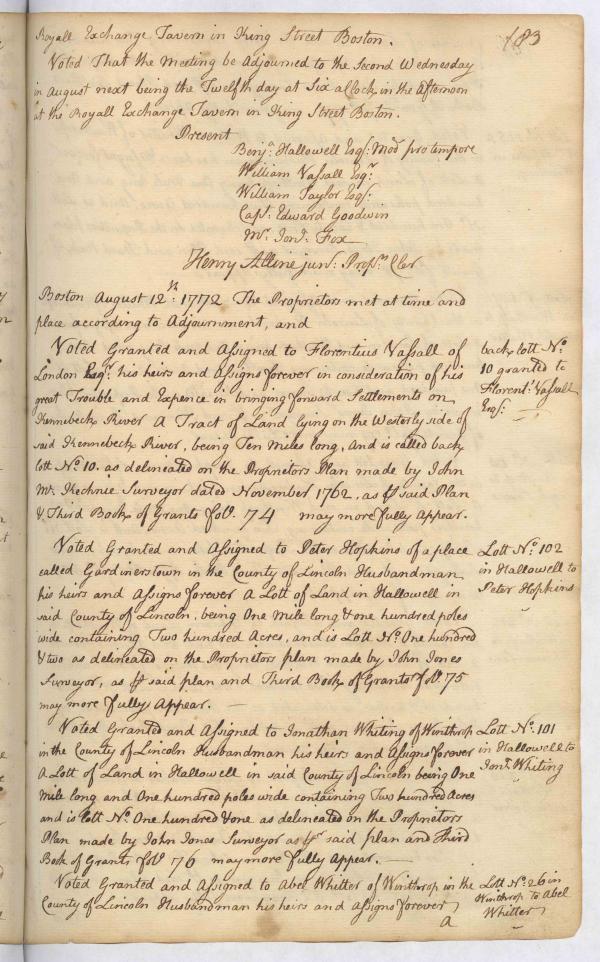 183
Royall Exchange Tavern in King Street Boston.
Voted That the Meeting be Adjourned to the Second Wednesday
in August next being the Twelfth day at Six a Clock in the Afternoon
at the Royall Exchange Tavern in King Street Boston.
Present
Benja. Hallowell Esqr: Modr pro tempore
William Vassall Esqr.
William Taylor Esqr.
Capt. Edward Goodwin
Mr. Jont. Fox
Henry Alline junr. Proprs Cler
Boston August 12th: 1772 The Proprietors met at time and
place according to Adjournment, and
Voted Granted and Assigned to Florentius Vassall of
London Esqr. his heirs and Assigns forever in consideration of his
great Trouble and Expence in bringing forward Settlements on
Kennebeck River A Tract of Land lying on the Westerly side of
said Kennebeck River, being Ten Miles long, and is called back
lott No. 10. as delineated on the Proprietors Plan made by John
Mc. Kechnie Surveyor dated November 1762, as pr said Plan
& Third Book of Grants folo. 74 may more fully Appear.
back lott No.
10 granted to
Florent: Vassall
Esqr:
Voted Granted and Assigned to Peter Hopkins of a place
called Gardinerstown in the County of Lincoln Husbandman
his heirs and Assigns forever A Lott of Land in Hallowell in
said County of Lincoln, being One Mile long & one hundred poles
wide containing Two hundred Acres, and is Lott No. One hundred
& two as delineated on the Proprietors plan made by John Jones
Surveyor, as pr said plan and Third Book of Grants folo. 75
may more fully Appear.
Lott No. 102
in Hallowell to
Peter Hopkins
Voted Granted and Assigned to Jonathan Whiting of Winthrop
in the County of Lincoln Husbandman his heirs and Assigns forever
A Lott of Land in Hallowell in said County of Lincoln being One
Mile long and One hundred poles wide containing Two hundred Acres
and is lott No. One hundred & one as delineated on the Proprietors
Plan made by John Jones Surveyor as pr said plan and Third
Book of Grants folo. 76 may more fully Appear.
Lott No. 101
in Hallowell to
Jont. Whiting
Voted Granted and Assigned to Abel Whitter of Winthrop in the
County of Lincoln Husbandman his heirs and Assigns forever
a
Lott No. 26 in
Winthrop to Abel
Whitter